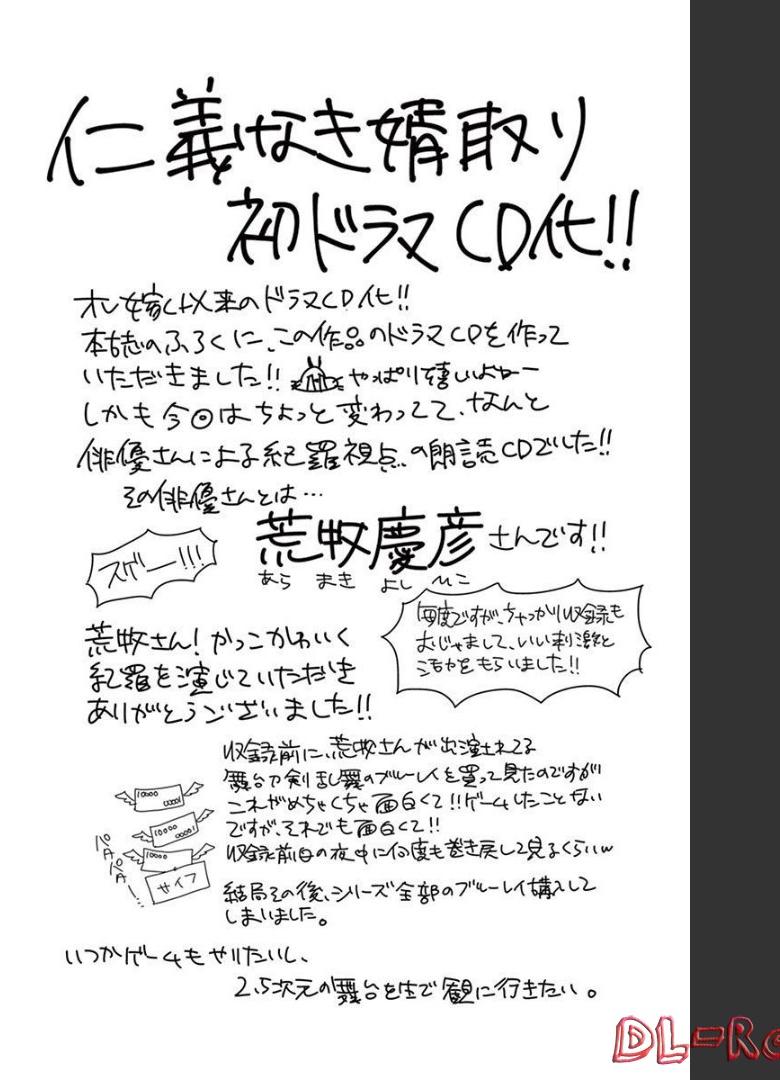 仁義なき婿取り
初ドラマCD化!!
オレ嫁以来のドラマCD化!!
本誌のふろくに、この作品のドラマCDを作って
いただきました!! やっぱり嬉しいよねー
しかも今回はちょっと変わってて、なんと
俳優さんによる紀羅視点の朗読CDでした!!
その俳優さんとは…
荒牧慶彦さんです!!
あら まき よし ひこ
スゲー!!!
毎度ですが、ちゃっかり収録も
おじゃまして、いい刺激と
コヤシをもらいました!!
荒牧さん!かっこかわいく
紀羅を演じていただき
ありがとうございました!!
収録前に、荒牧さんが出演されてる
舞台刀剣乱舞のブルーレイを買って見たのですが
これがめちゃくちゃ面白くて!!ゲームしたことない
ですが、それでも面白くて!!
収録前日の夜中に何度も巻き戻して見るくらいw
結局その後、シリーズ全部のブルーレイ購入して
しまいました。
10000
10000
10000
パタパタ…
サイフ
いつかゲームもやりたいし、
2.5次元の舞台を生で観に行きたい。